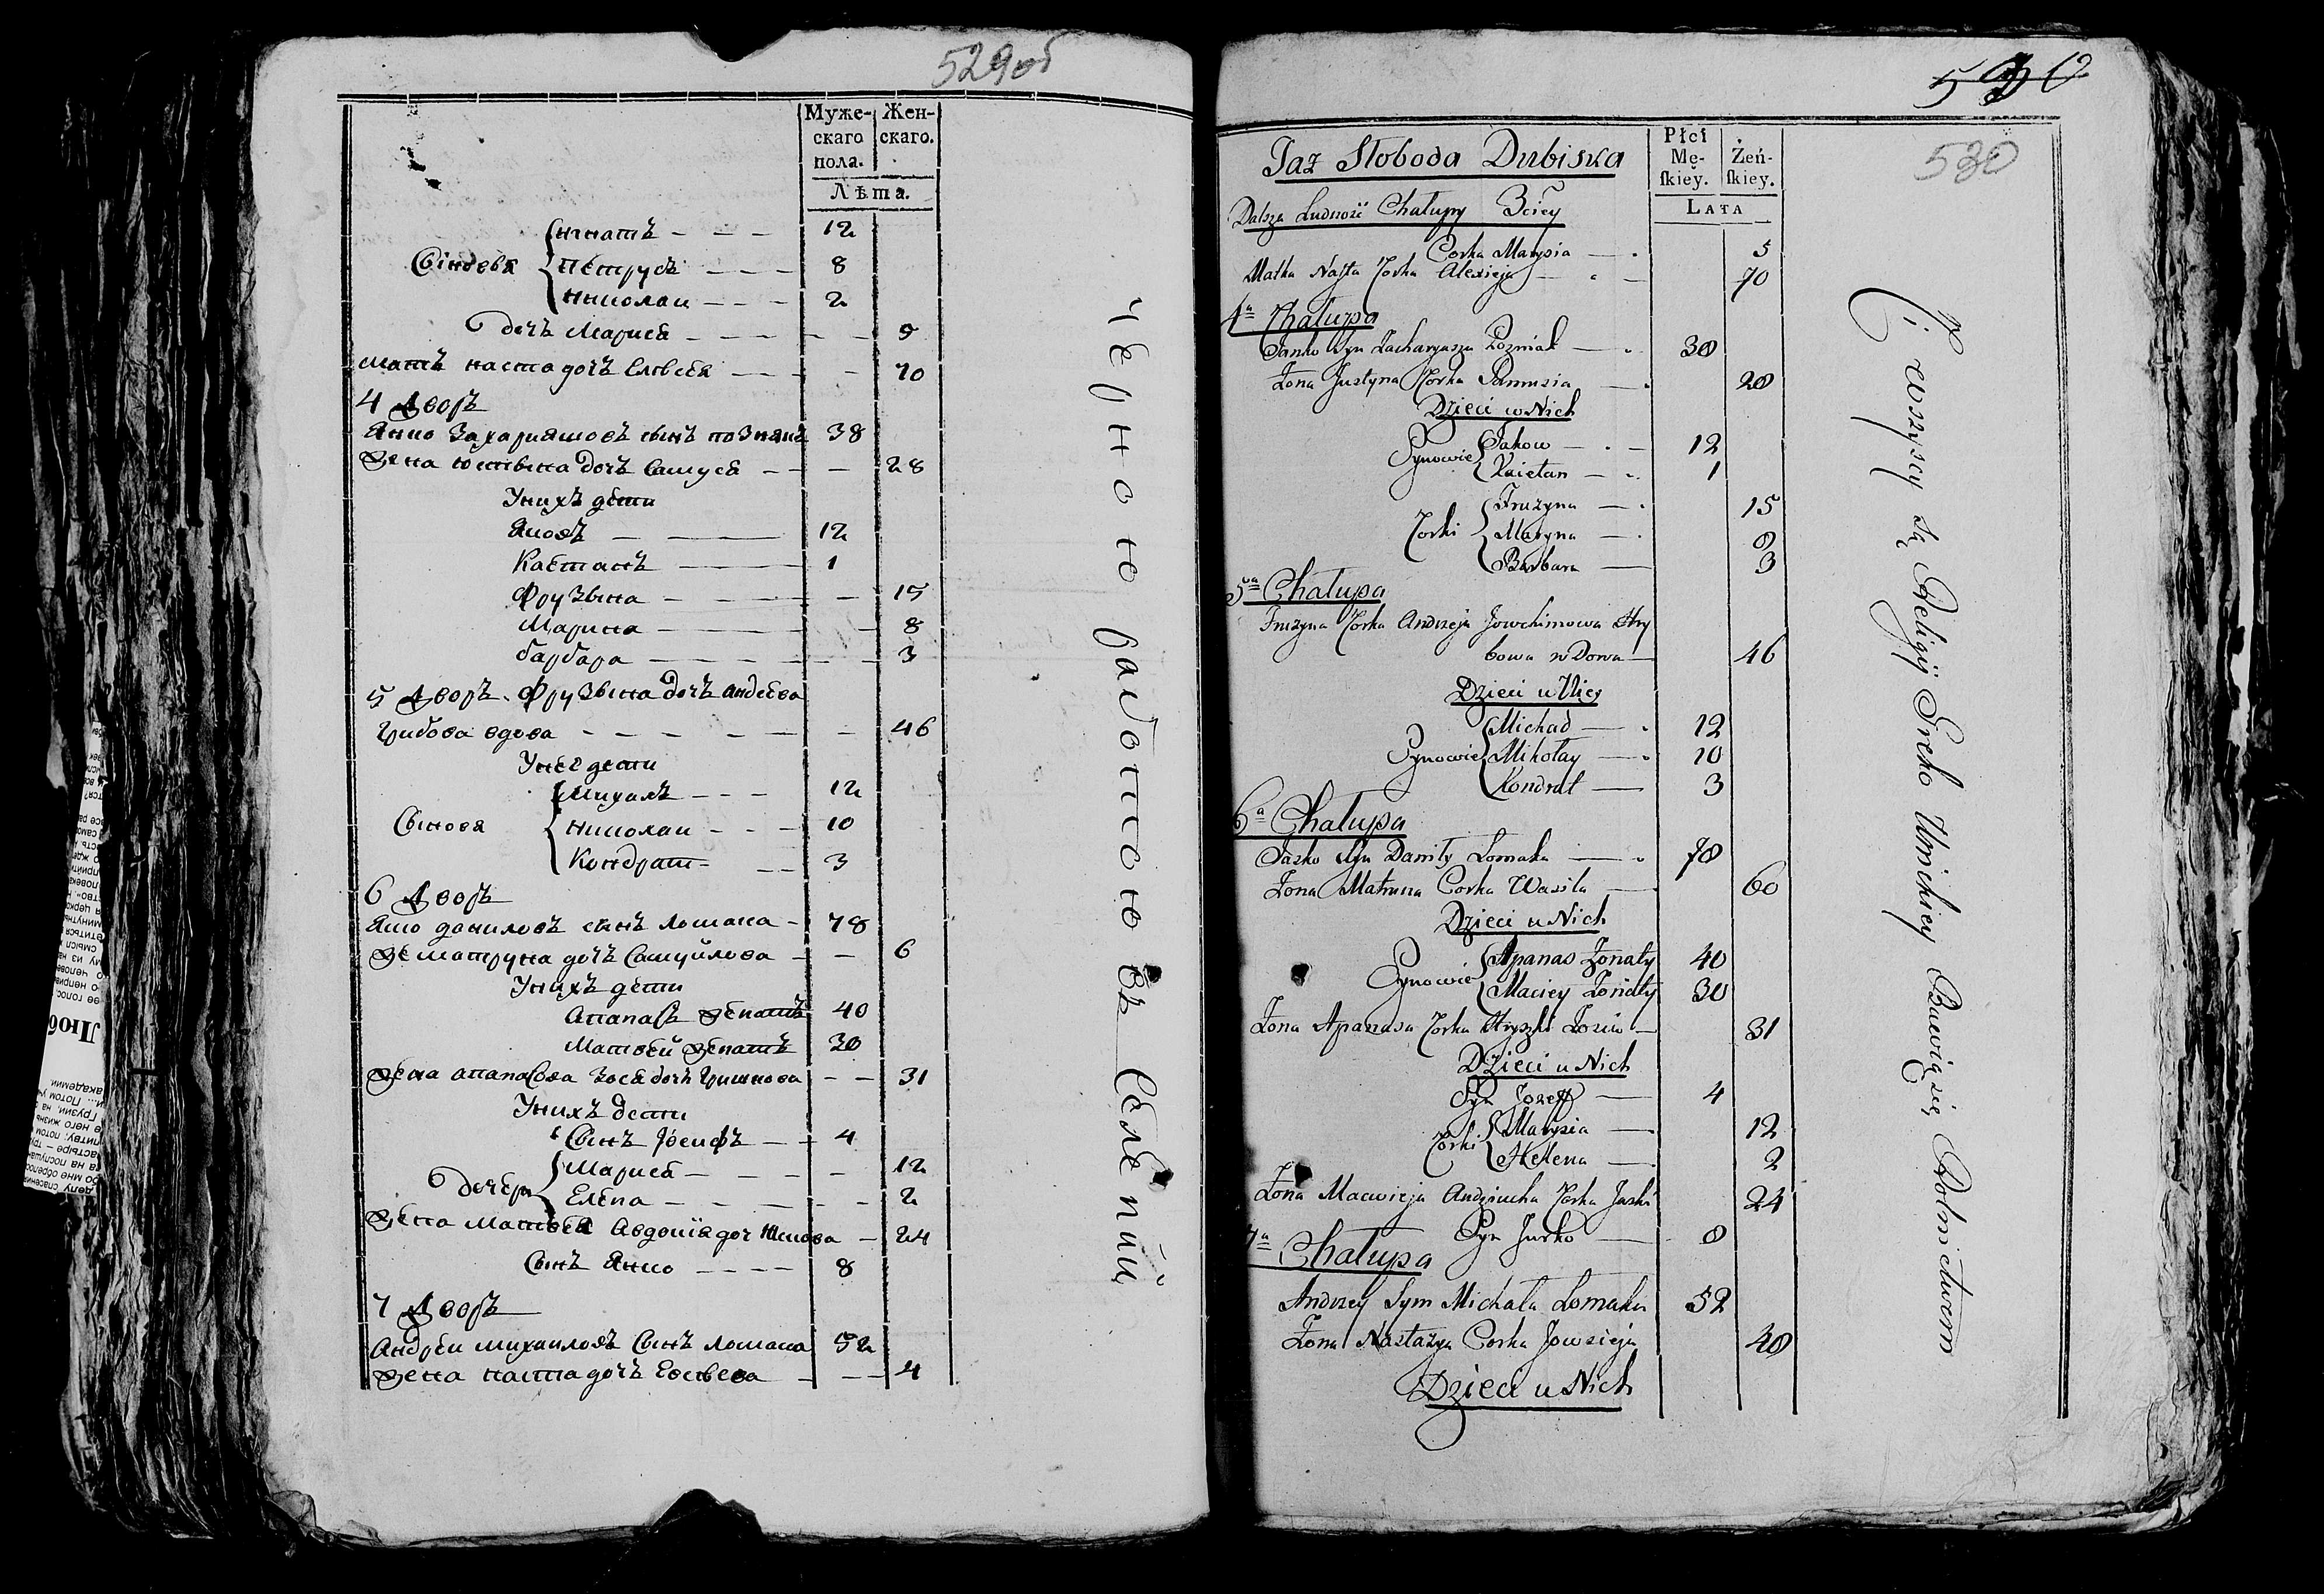 529об
Муже- Жен-
скаго скаго.
пола.
Лѣта.
Игнатъ - - - 12
Сыновья Петрусь - - - 8
Николаи - - - 2
дочь Марися - - - 5
мать наста дочь Елѣвсея - - - 70
4 дворъ
Янко Захаряшовъ сынъ познякъ 38
жена юстына дочь самуся - - 28
Унихъ дети
Яковъ - - 12
Каетанъ - 1
Фрузына - - - 15
Марина - 8
барбара - - - 3
5 дворъ. Фрузына дочь андеѣва
Грибова вдова - - - - 46
У нее дети
Михалъ - - - 12
Сыновя Николаи - - - 10
Кондрат - - 3
6 дворъ
Яско даниловъ сынъ ломака - 78
же матруна дочь Самуйлова - - 6
Унихъ дети
Апанасъ женатъ 40
Матвей женатъ 30
жена апанасова зося дочь Гришкова - - 31
Унихъ дети
Сынъ Иосифъ - - 4
Марися - - - 12
дочери Елена - - - - 2
жена Матвея Авдотия доч Яскова - 24
Сынъ Янко - - - - 8
7 дворъ
Андреи михаиловъ сынъ ломака 52
жена наста дочь Евсѣева - - - 4
черною работою въ Селений
530
530
Jaz Słoboda Dubiska
Płci
Mę- Żeń-
ſkiey. ſkiey.
LATA
Dalsza Ludność Chałupy 3ciey
Corka Marysia - 5
Matka Nasta Corka Alexieja - 70
4ª Chałupa
Janko Syn Zacharyasza Pozniak - 38
Żona Justyna Corka Samusia - 28
Dzieci u Nich
Synowie Jakow - 12
Kaietan - 1
Fruzyna - 15
Corki Maryna - 8
Barbara - 3
5ª Chałupa
Fruzyna Corka Andrzeja Jowchimowa Hry
bowa wdowa - 46
Dzieci u Niey
Michał - 12
Synowie Mikołay - 10
Kondrat - 3
6ª Chałupa
Jasko Syn Daniły Łomaka - 78
Żona Matruna Corka Wasila - 60
Dzieci u Nich
Synowie Apanas Żonaty 40
Maciey Żonaty 30
Żona Apanasa Corka Hryszki Zosia - 31
Dzieci u Nich
Syn Jozeff - 4
Marysia - 12
Corki Helena - 2
Żona Macwieja Andziucha Corka Jaski 24
Syn Jurko - 8
7ª Chałupa
Andrzey Syn Michała Łomaka 52
Żona Nastazya Corka Jowsieja 48
Dzieci u Nich
Ci wszyscy są Religij Greko Unickiey Bawią się Rolnictwem